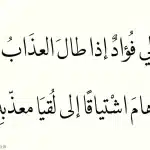 لي فُؤَادٌ إذا طالَ العذَابُ
هامَ اشْتياقًا إلى لُقيَا معذّبهِ